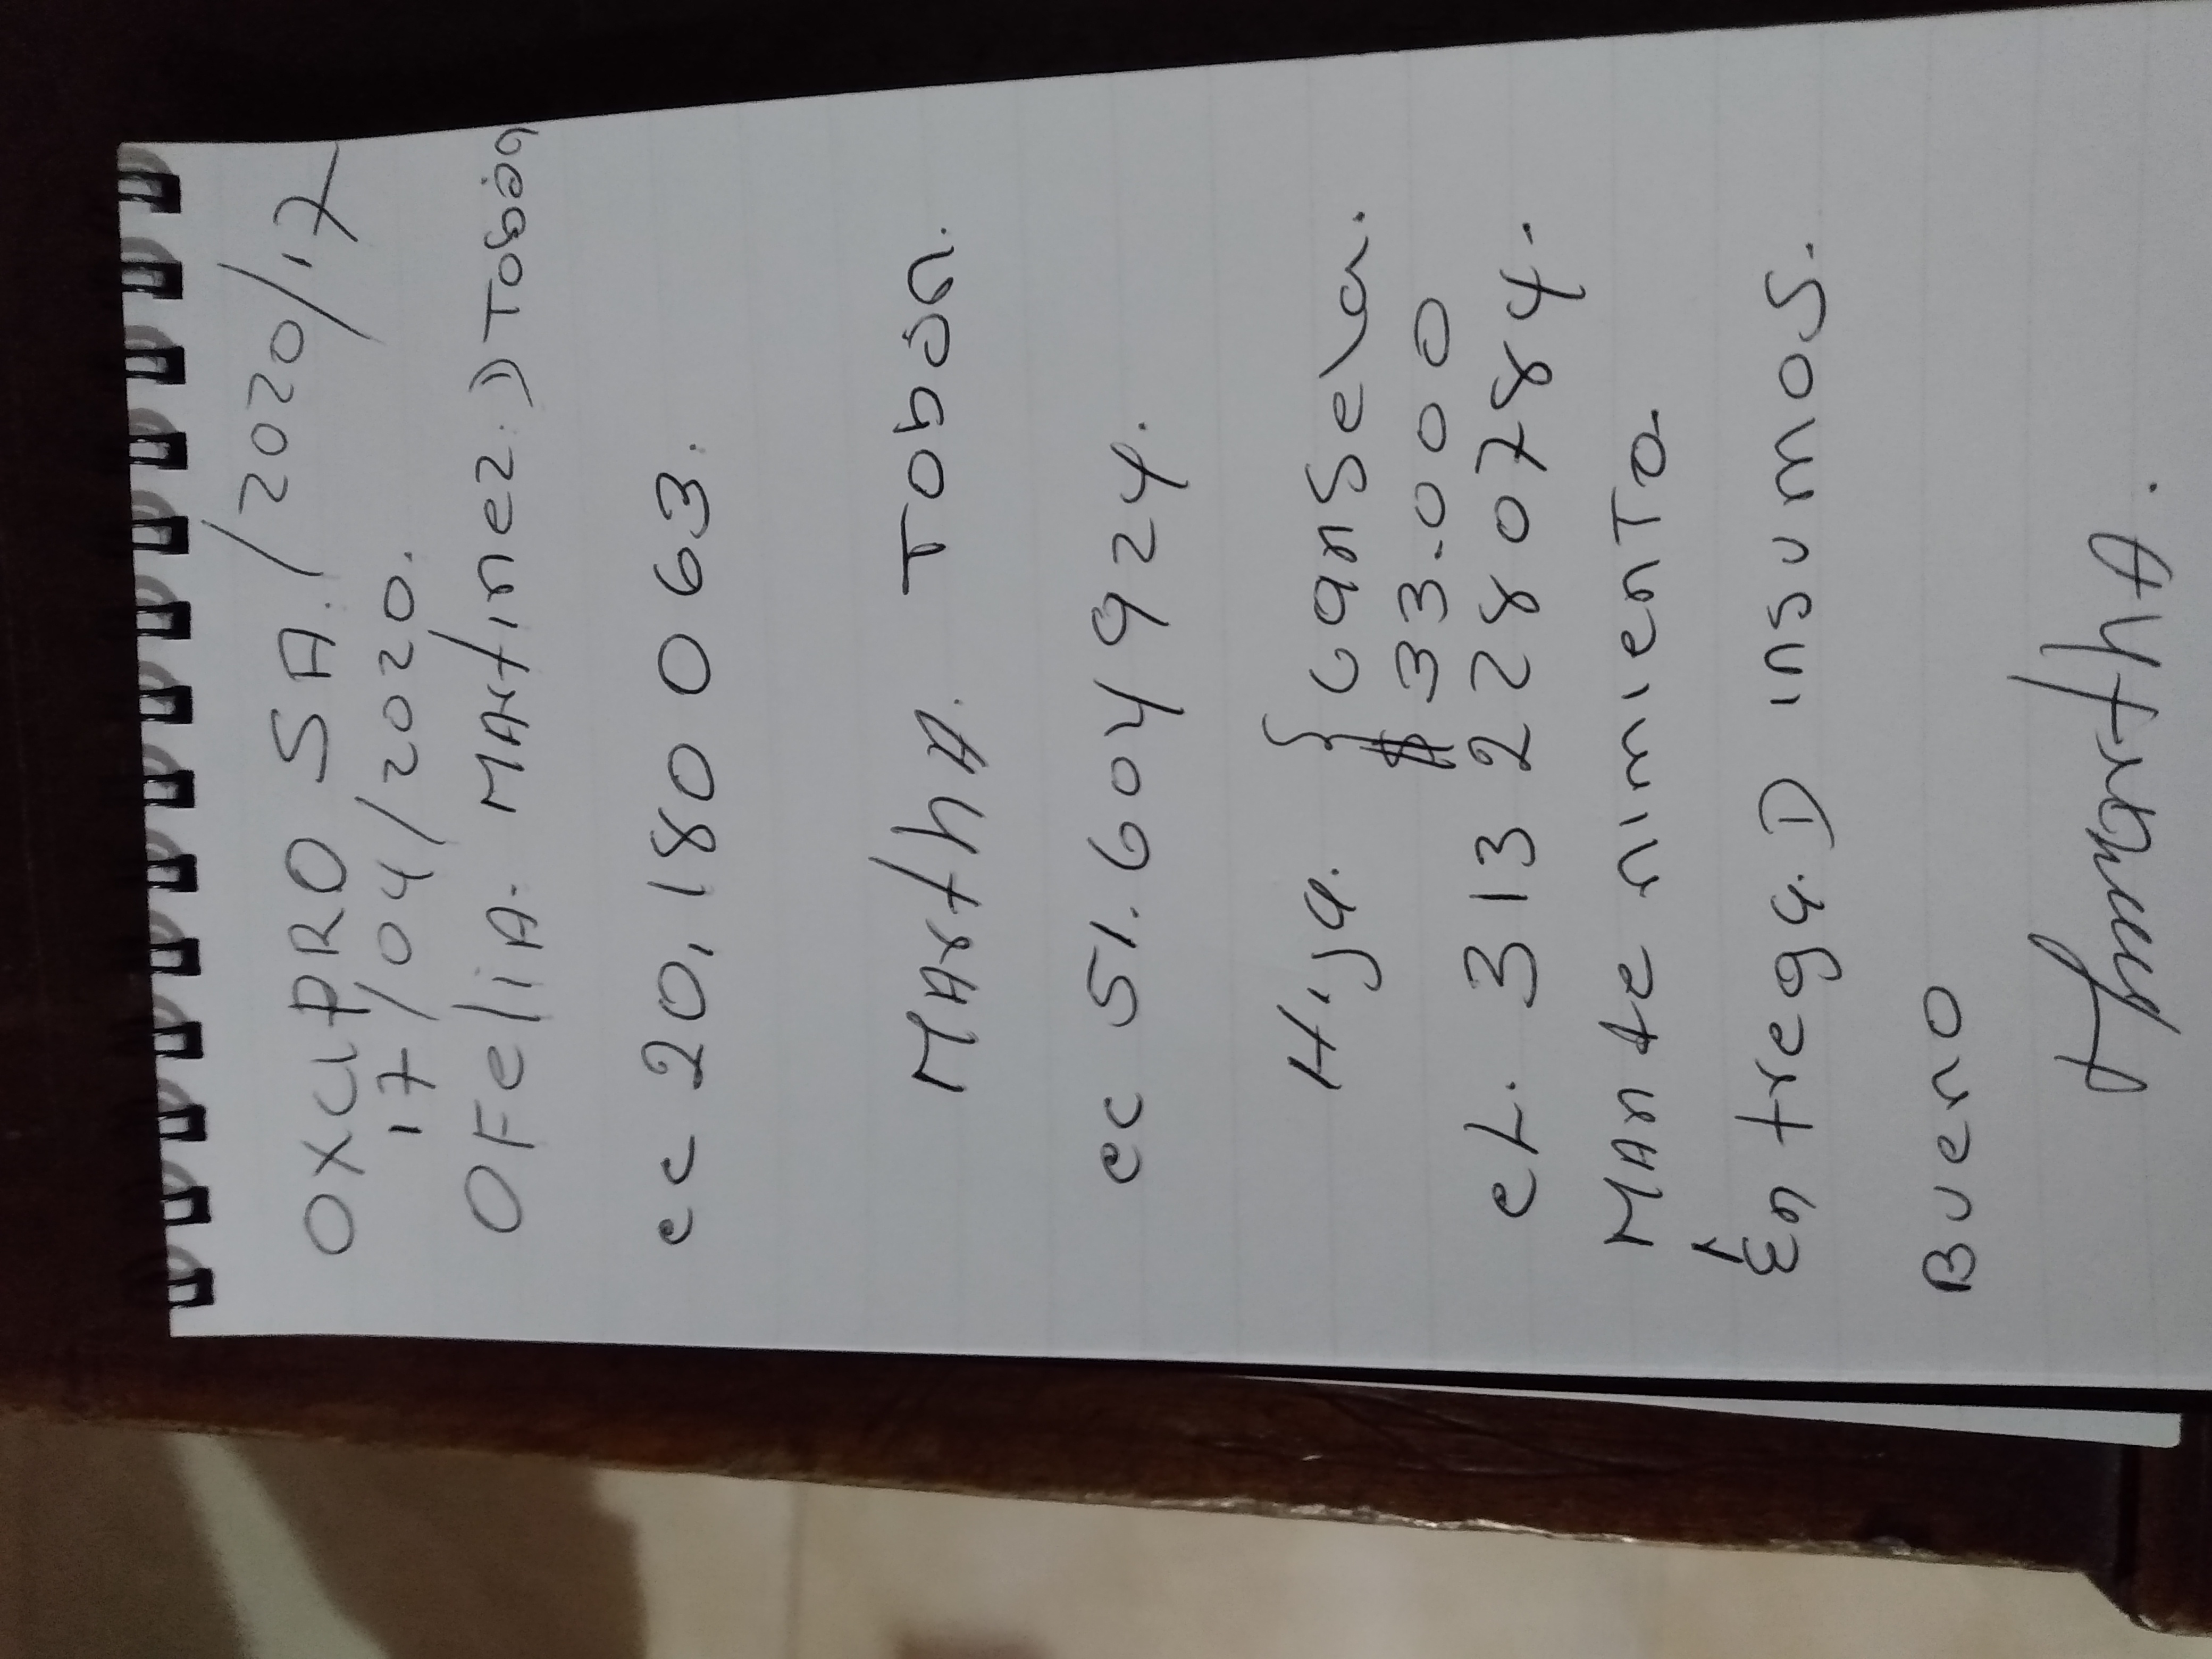 OXCIPRO SA. / 2020 / 17
17/04/2020.
OFeliA. MArtinez.) Tobón
cc 20.180 063.
MArthA. Tobón.
cc 51.604924.
Hija. } canSela.
$ 33.000
cL. 313 2280784.
MAnte nimiento.
Entrega. D insumos.
Bueno